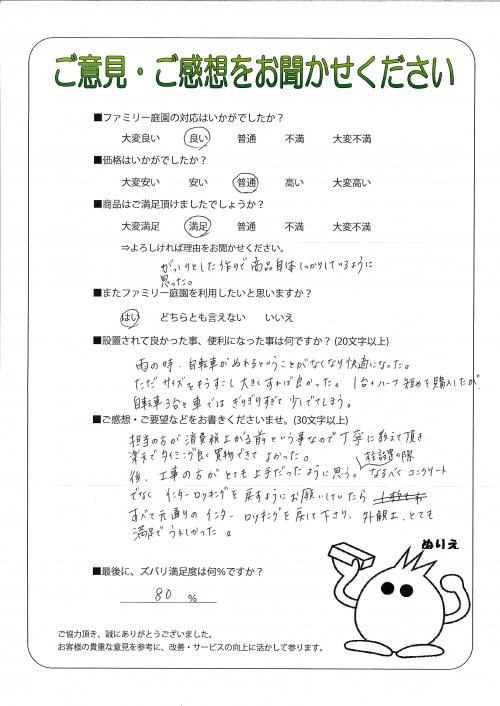 ご意見・ご感想をお聞かせください
■ファミリー庭園の対応はいかがでしたか？
大変良い　良い　普通　不満　大変不満
■価格はいかがでしたか？
大変安い　安い　普通　高い　大変高い
■商品はご満足頂けましたでしょうか？
大変満足　満足　普通　不満　大変不満
⇒よろしければ理由をお聞かせください。
がっしりとした作りで商品自体しっかりしているように
思った。
■またファミリー庭園を利用したいと思いますか？
はい　どちらとも言えない　いいえ
■設置されて良かった事、便利になった事は何ですか？(20文字以上)
雨の時、自転車がぬれるということがなくなり快適になった。
ただサイズをもうすこし大きくすれば良かった。1台+ハーフ 短めを購入したが
自転車3台と車ではぎりぎりすぎて少しでてしまう。
■ご感想・ご要望などをお書きくださいませ。(30文字以上)
担当の方が消費税上がる前という事なので丁寧に教えて頂き
楽天でタイミング良く買物できてよかった。
柱設置の際
後、工事の方がとても上手だったように思う。なるべくコンクリート
でなく インターロッキングを戻すようにお願いしていたら
すべて元通りのインターロッキングを戻して下さり、外観上、とても
満足でうれしかった。
ぬりえ
■最後に、ズバリ満足度は何％ですか？
80 %
ご協力頂き、誠にありがとうございました。
お客様の貴重な意見を参考に、改善・サービスの向上に活かして参ります。